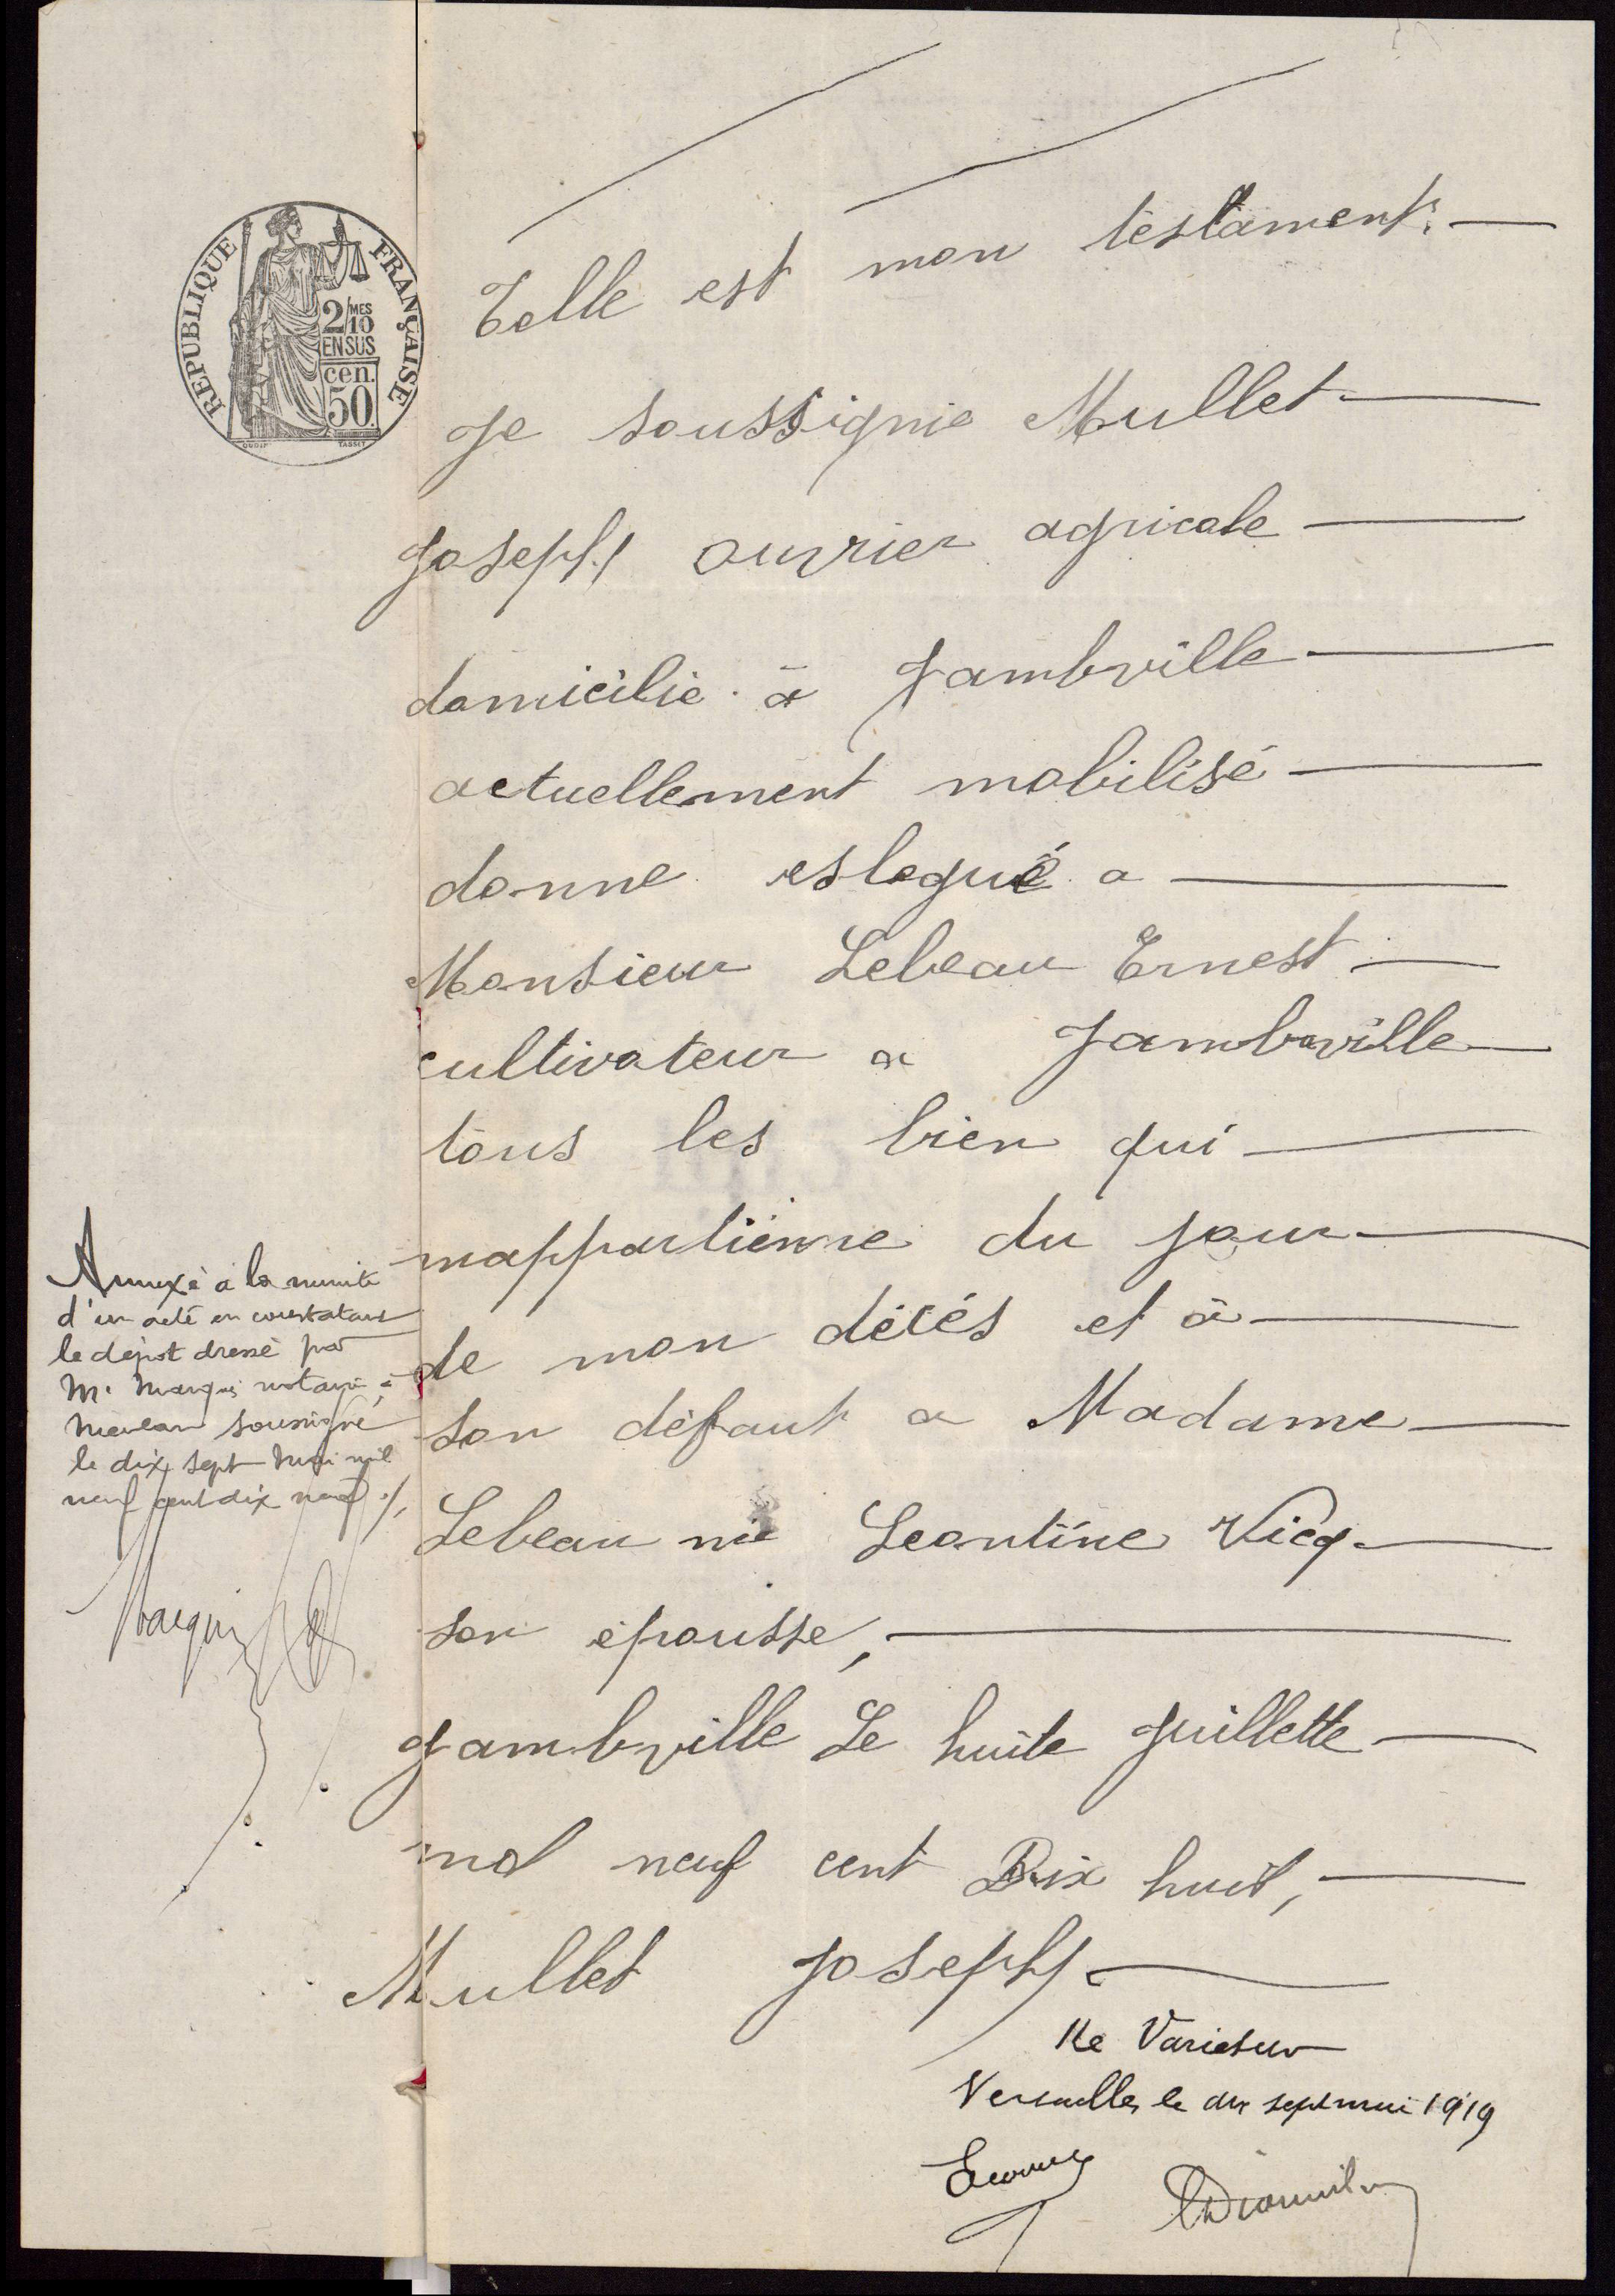 REPUBLIQUE FRANÇAISE
2/10 MES
EN SUS
cen.
50.
OUDIN TASSET
Telle est mon testament.
Je soussignie Mullet
Joseph ouvrier agricole
domicilie à Jambville
actuellement mobilisé
donne eslegué a
Monsieur Lebeau Ernest
cultivateur a Jambville
tous les bien qui
mappartienne du jour
de mon décés et à
son défaut a Madame
Lebeau né Leontine Vicq
son épousse,
Jambville Le huite Juillette
mil neuf cent Dix huit,
Mullet Joseph
Annexé à la minute
d'un acte en constatant
le dépot dressé par
Me Marquis notaire à
Meulan soussigné
le dix sept Mai mil
neuf cent dix neuf ./.
Marquis
Ne Varietur
Versailles le dix sept mai 1919